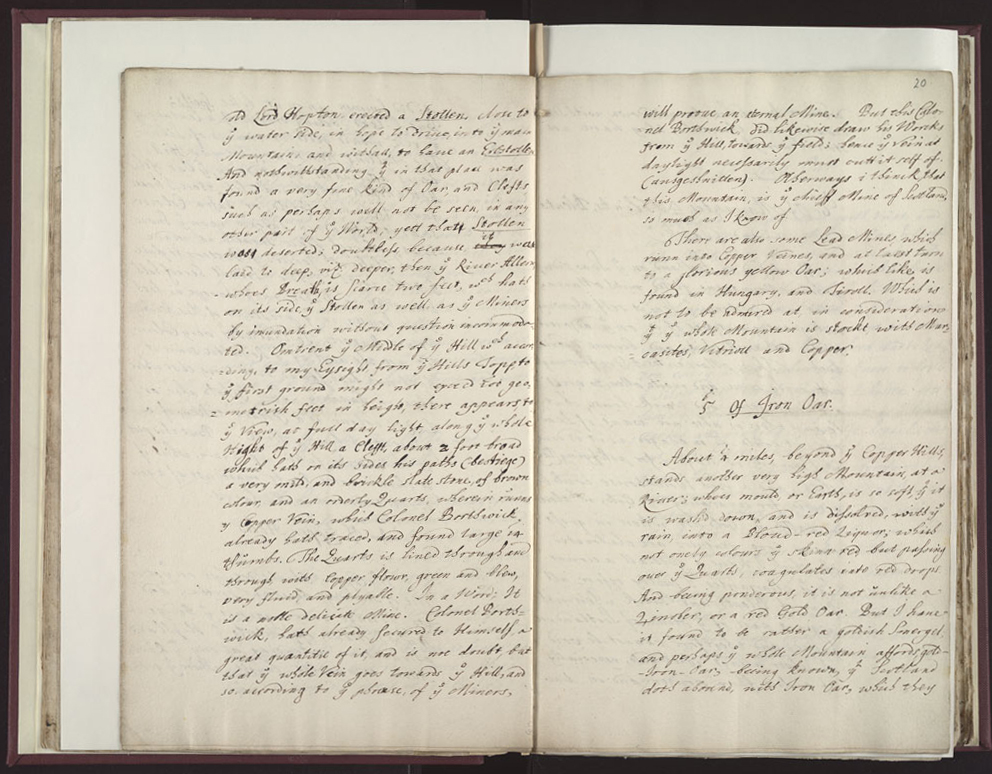 ad Lord Hopton erected a Stollen, close to
yͤ water side, in hope to drive, into yͤ main
Mountain: and withall, to have an Erbstollen
And nothwithstanding yͭ in that place was
found a very fine kind of Oar, and Clefts
such as perhaps will not be seen, in any
other part of yͤ World; yett that Stollen
was deserted, doubtless, because it was
laid to deep, viz deeper, then yͤ River
whoes Breath, is scarce two feet, wͨʰ hath
on its side, yͤ Stollen as well as yͤ Miners
by inundation without question incommoda-
ted. Omtrent yͤ Midle of yͤ Hill wͨʰ accor-
ding, to my Eysight from yͤ Hills Topp to
yͤ first ground might not exceed 100 geo-
=metrish feet in height, there appears to
yͤ View, at full day light, along yͤ whole
Hight of yͤ Hill a Clefft, about 2 foot broad
which hath on its sides his paths (bestiege)
a very mild, and brickle slate stone, of brown
colour, and an orderly Quarts, wherein runns
yͤ Copper Vein, which Colonel Borthwick,
already hath traced, and found large
thumbs. The Quarts is lined through and
through with Copper flour, green and blew,
very fluid, and plyable. In a Word; It
is a noble delicate Mine. Colonel Borth-
wick, hath already secured to Himself a
great quantitie of it, and is not doubt, but
that yͤ whole Vein goes towards yͤ Hill, and
so, according to yͤ phrase, of yͤ Miners,
20
will prove, an eternal Mine. But this Colo-
nel Borthwick, did likewise draw his Works
from yͤ Hill, towards yͤ field; hence yͤ Vein at
daylight necessarily must cutt it self of.
(ausgeshnitten). Otherways i think that
this Mountain, is yͤ chieff Mine of Scotland,
so much as I know of
There are also some Lead Mines which
runn into Copper Veines, and at laest turn
to a glorious yellow Oar; which like, is
found in Hungary, and Tiroll. Which is
not to be admired at, in consideration
yͭ yͤ whole Mountain is stockt with Mar-
=casites, Vitrioll and Copper.
5 Of Iron Oar.
About 2 miles, beyond yͤ Copper Hills,
stands another very high Mountain, at a
River; whoes mould, or Earth, is so soft, yͭ it
is washd down, and is dissolved, with yͤ
rain, into a Bloud-red Liquor; which
not onely colours yͤ skinn red but passing
over yͤ Quarts, coagulates into red drops
And being ponderous, it is not unlike a
Zinober, or a red Gold Oar. But I have
it found to be rather a goldish Smergel,
and perhaps yͤ whole Mountain affords gold-
-Iron-Oar, being known, yͭ Scotland
doth abound, with Iron Oar, which they